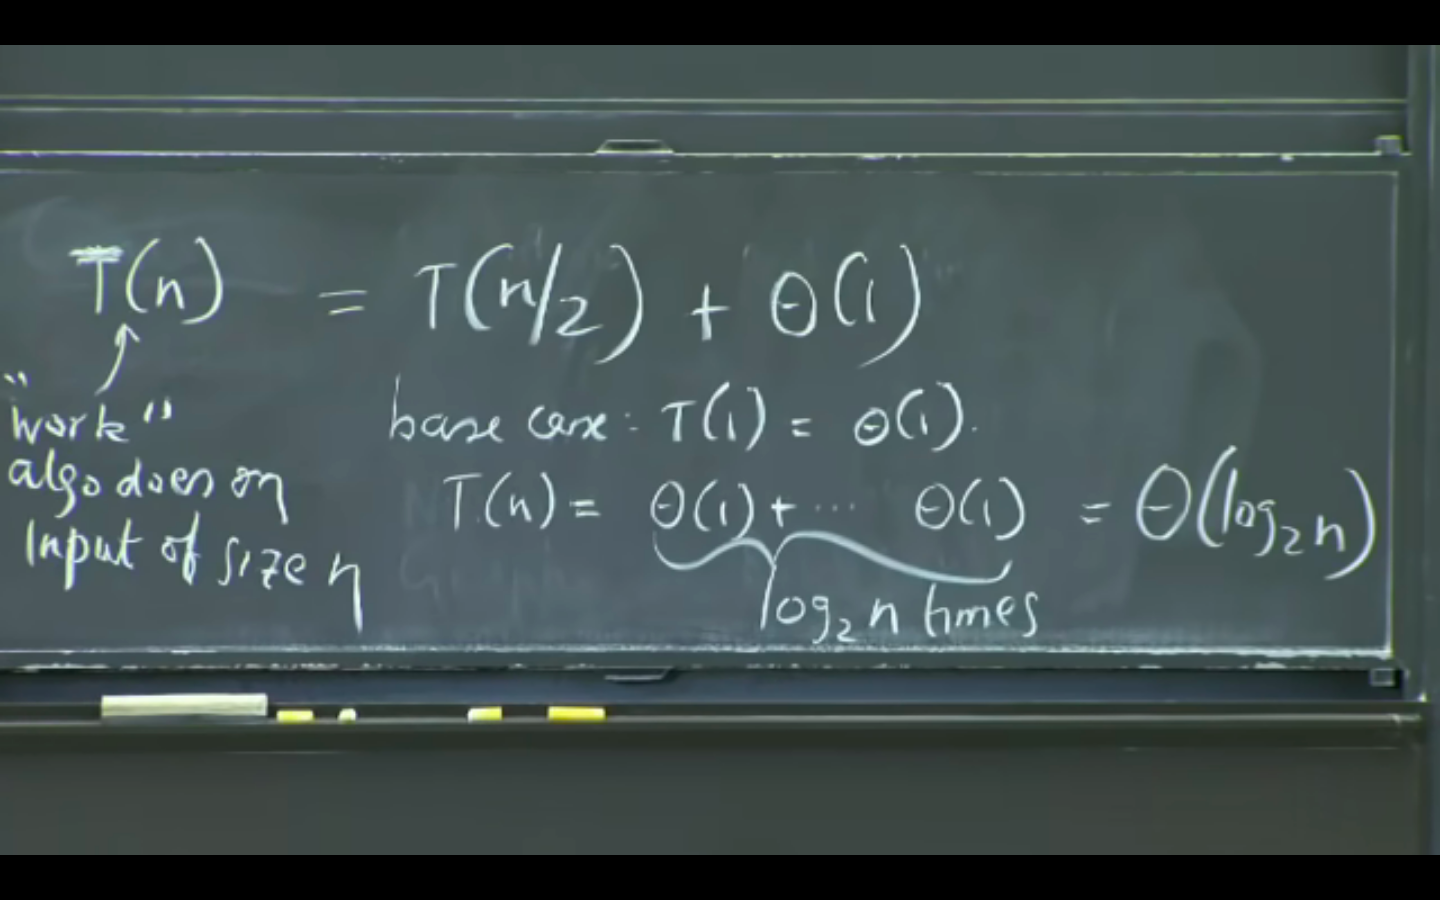 T(n) = T(n/2) + Θ(1)
"work"
algo does on
Input of size n
base case: T(1) = Θ(1).
T(n) = Θ(1) + ... Θ(1) = Θ(log₂n)
log₂ n times